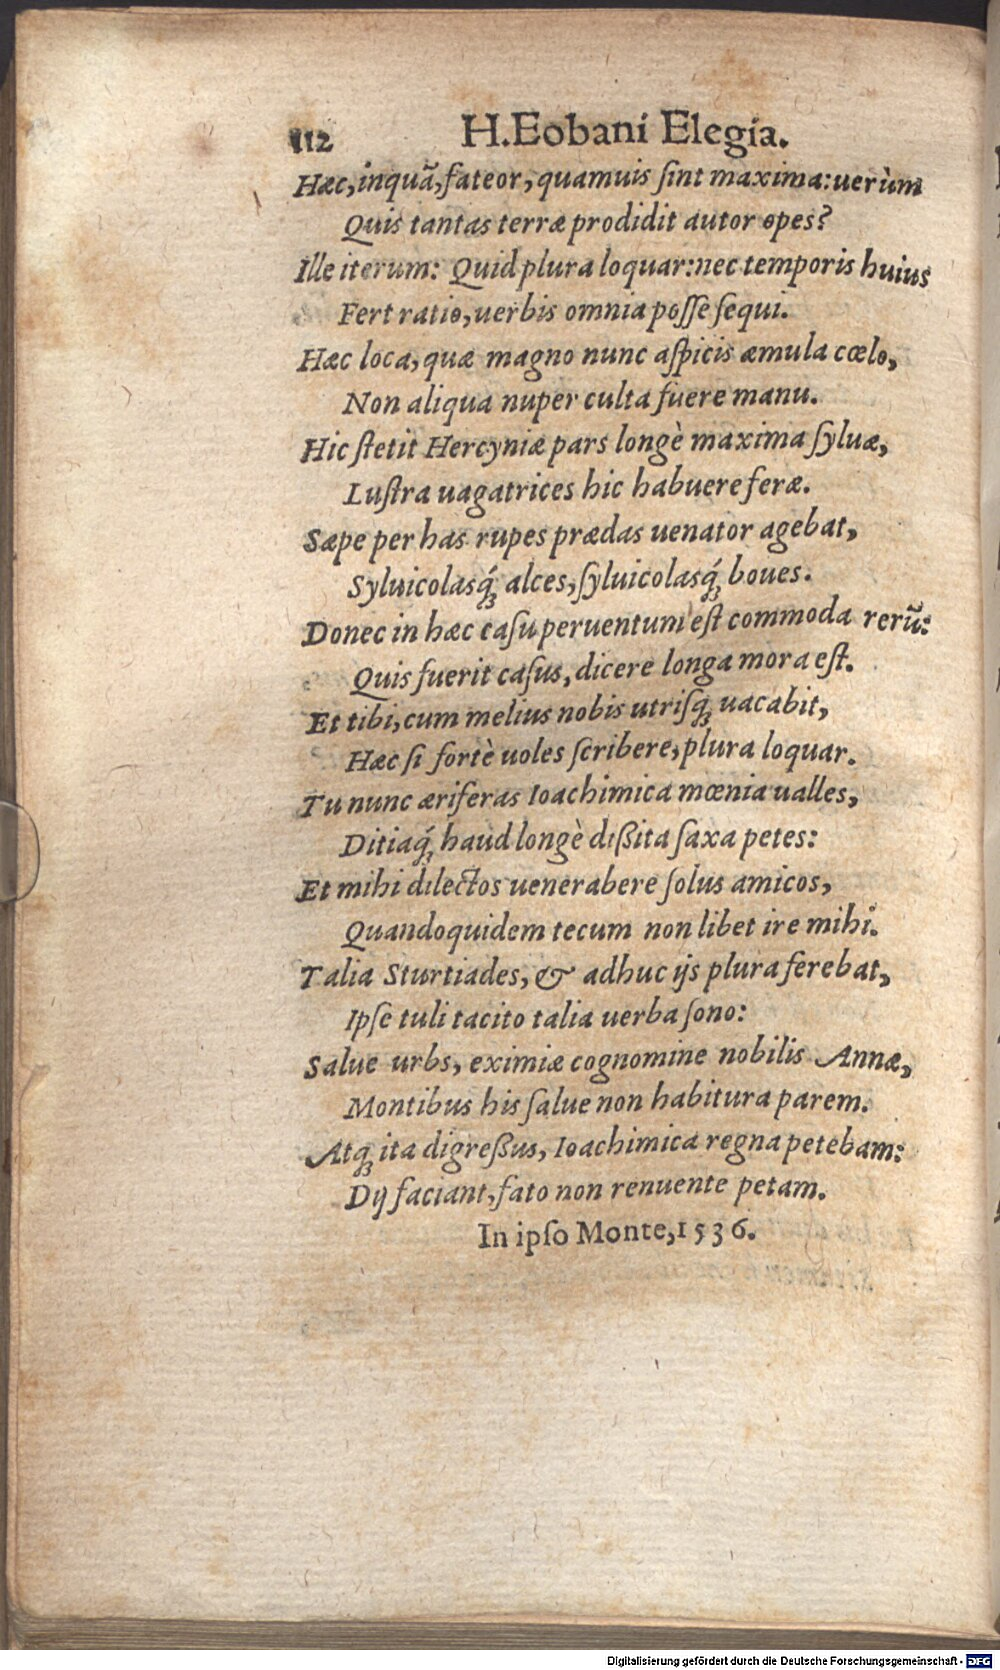 112 H. Eobani Elegia.
Hæc, inquã, fateor, quamuis ſint maxima: uerùm
Quis tantas terræ prodidit autor opes?
Ille iterum: Quid plura loquar: nec temporis huius
Fert ratio, uerbis omnia poſſe ſequi.
Hæc loca, quæ magno nunc aſpicis æmula cœlo,
Non aliqua nuper culta fuere manu.
Hic ſtetit Hercyniæ pars longè maxima ſyluæ,
Luſtra uagatrices hic habuere feræ.
Sæpe per has rupes prædas uenator agebat,
Syluicolasq́ꝫ alces, ſyluicolasq́ꝫ boues.
Donec in hæc caſu peruentum eſt commoda rerũ:
Quis fuerit caſus, dicere longa mora eſt.
Et tibi, cum melius nobis utriſqꝫ uacabit,
Hæc ſi fortè uoles ſcribere, plura loquar.
Tu nunc æriferas Ioachimica mœnia ualles,
Ditiaq́ꝫ haud longè dißita ſaxa petes:
Et mihi dilectos uenerabere ſolus amicos,
Quandoquidem tecum non libet ire mihi.
Talia Sturtiades, & adhuc ijs plura ferebat,
Ipſe tuli tacito talia uerba ſono:
Salue urbs, eximiæ cognomine nobilis Annæ,
Montibus his ſalue non habitura parem.
Atqꝫ ita digreßus, Ioachimica regna petebam:
Dij faciant, fato non renuente petam.
In ipſo Monte, 1536.
Digitalisierung gefördert durch die Deutsche Forschungsgemeinschaft - DFG